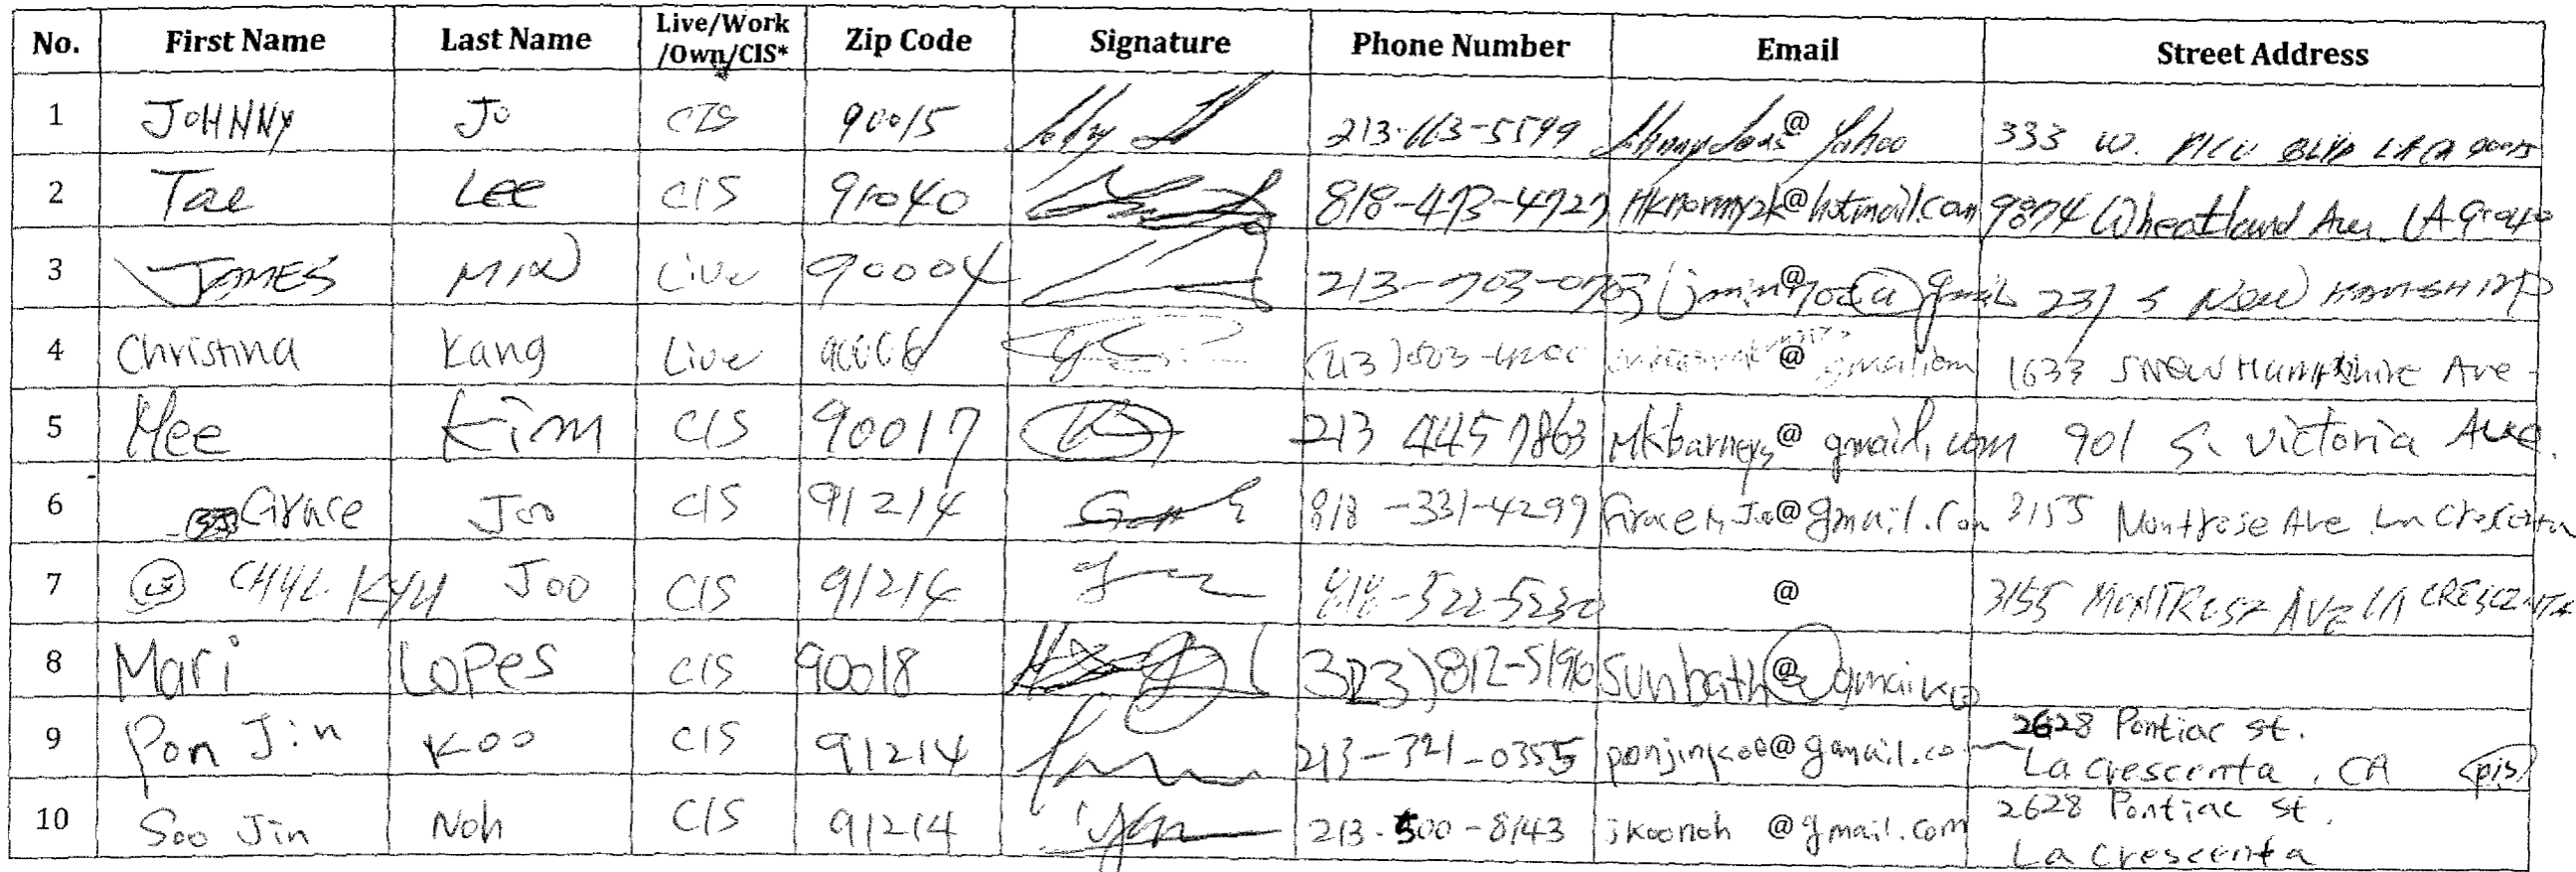 No. First Name Last Name Live/Work /Own/CIS* Zip Code Signature Phone Number Email Street Address
1 JOHNNY Jo CIS 90015 @ Yahoo 333 W. PICO BLVD LA CA 90015
2 Tae Lee CIS 91040 818-473-4727 @hotmail.com 9874 Wheatland Ave. LA 91040
3 JAMES MIN Live 90004 213-703-0703 @ 237 S NEW
4 Christina Kang Live 90006 @ 1633 S New Hampshire Ave
5 Mee Kim CIS 90017 213 445 7863 Mkbarneys@ gmail.com 901 S. Victoria Ave.
6 Grace Joo CIS 91214 818-331-4297 @gmail.com 3155 Montrose Ave La Crescenta
7 KYU JOO CIS 91214 818-522-5230 @ 3155 MONTROSE AVE LA CRESCENTA
8 Mari Lopes CIS 90018 323)812-5196 Sunbath@
9 Pon Jin Koo CIS 91214 213-321-0355 ponjinkoo@gamail.com 2628 Pontiac st.
La Crescenta, CA
10 Soo Jin Noh CIS 91214 213-500-8143 jkoonoh @gmail.com 2628 Pontiac st.
La Crescenta